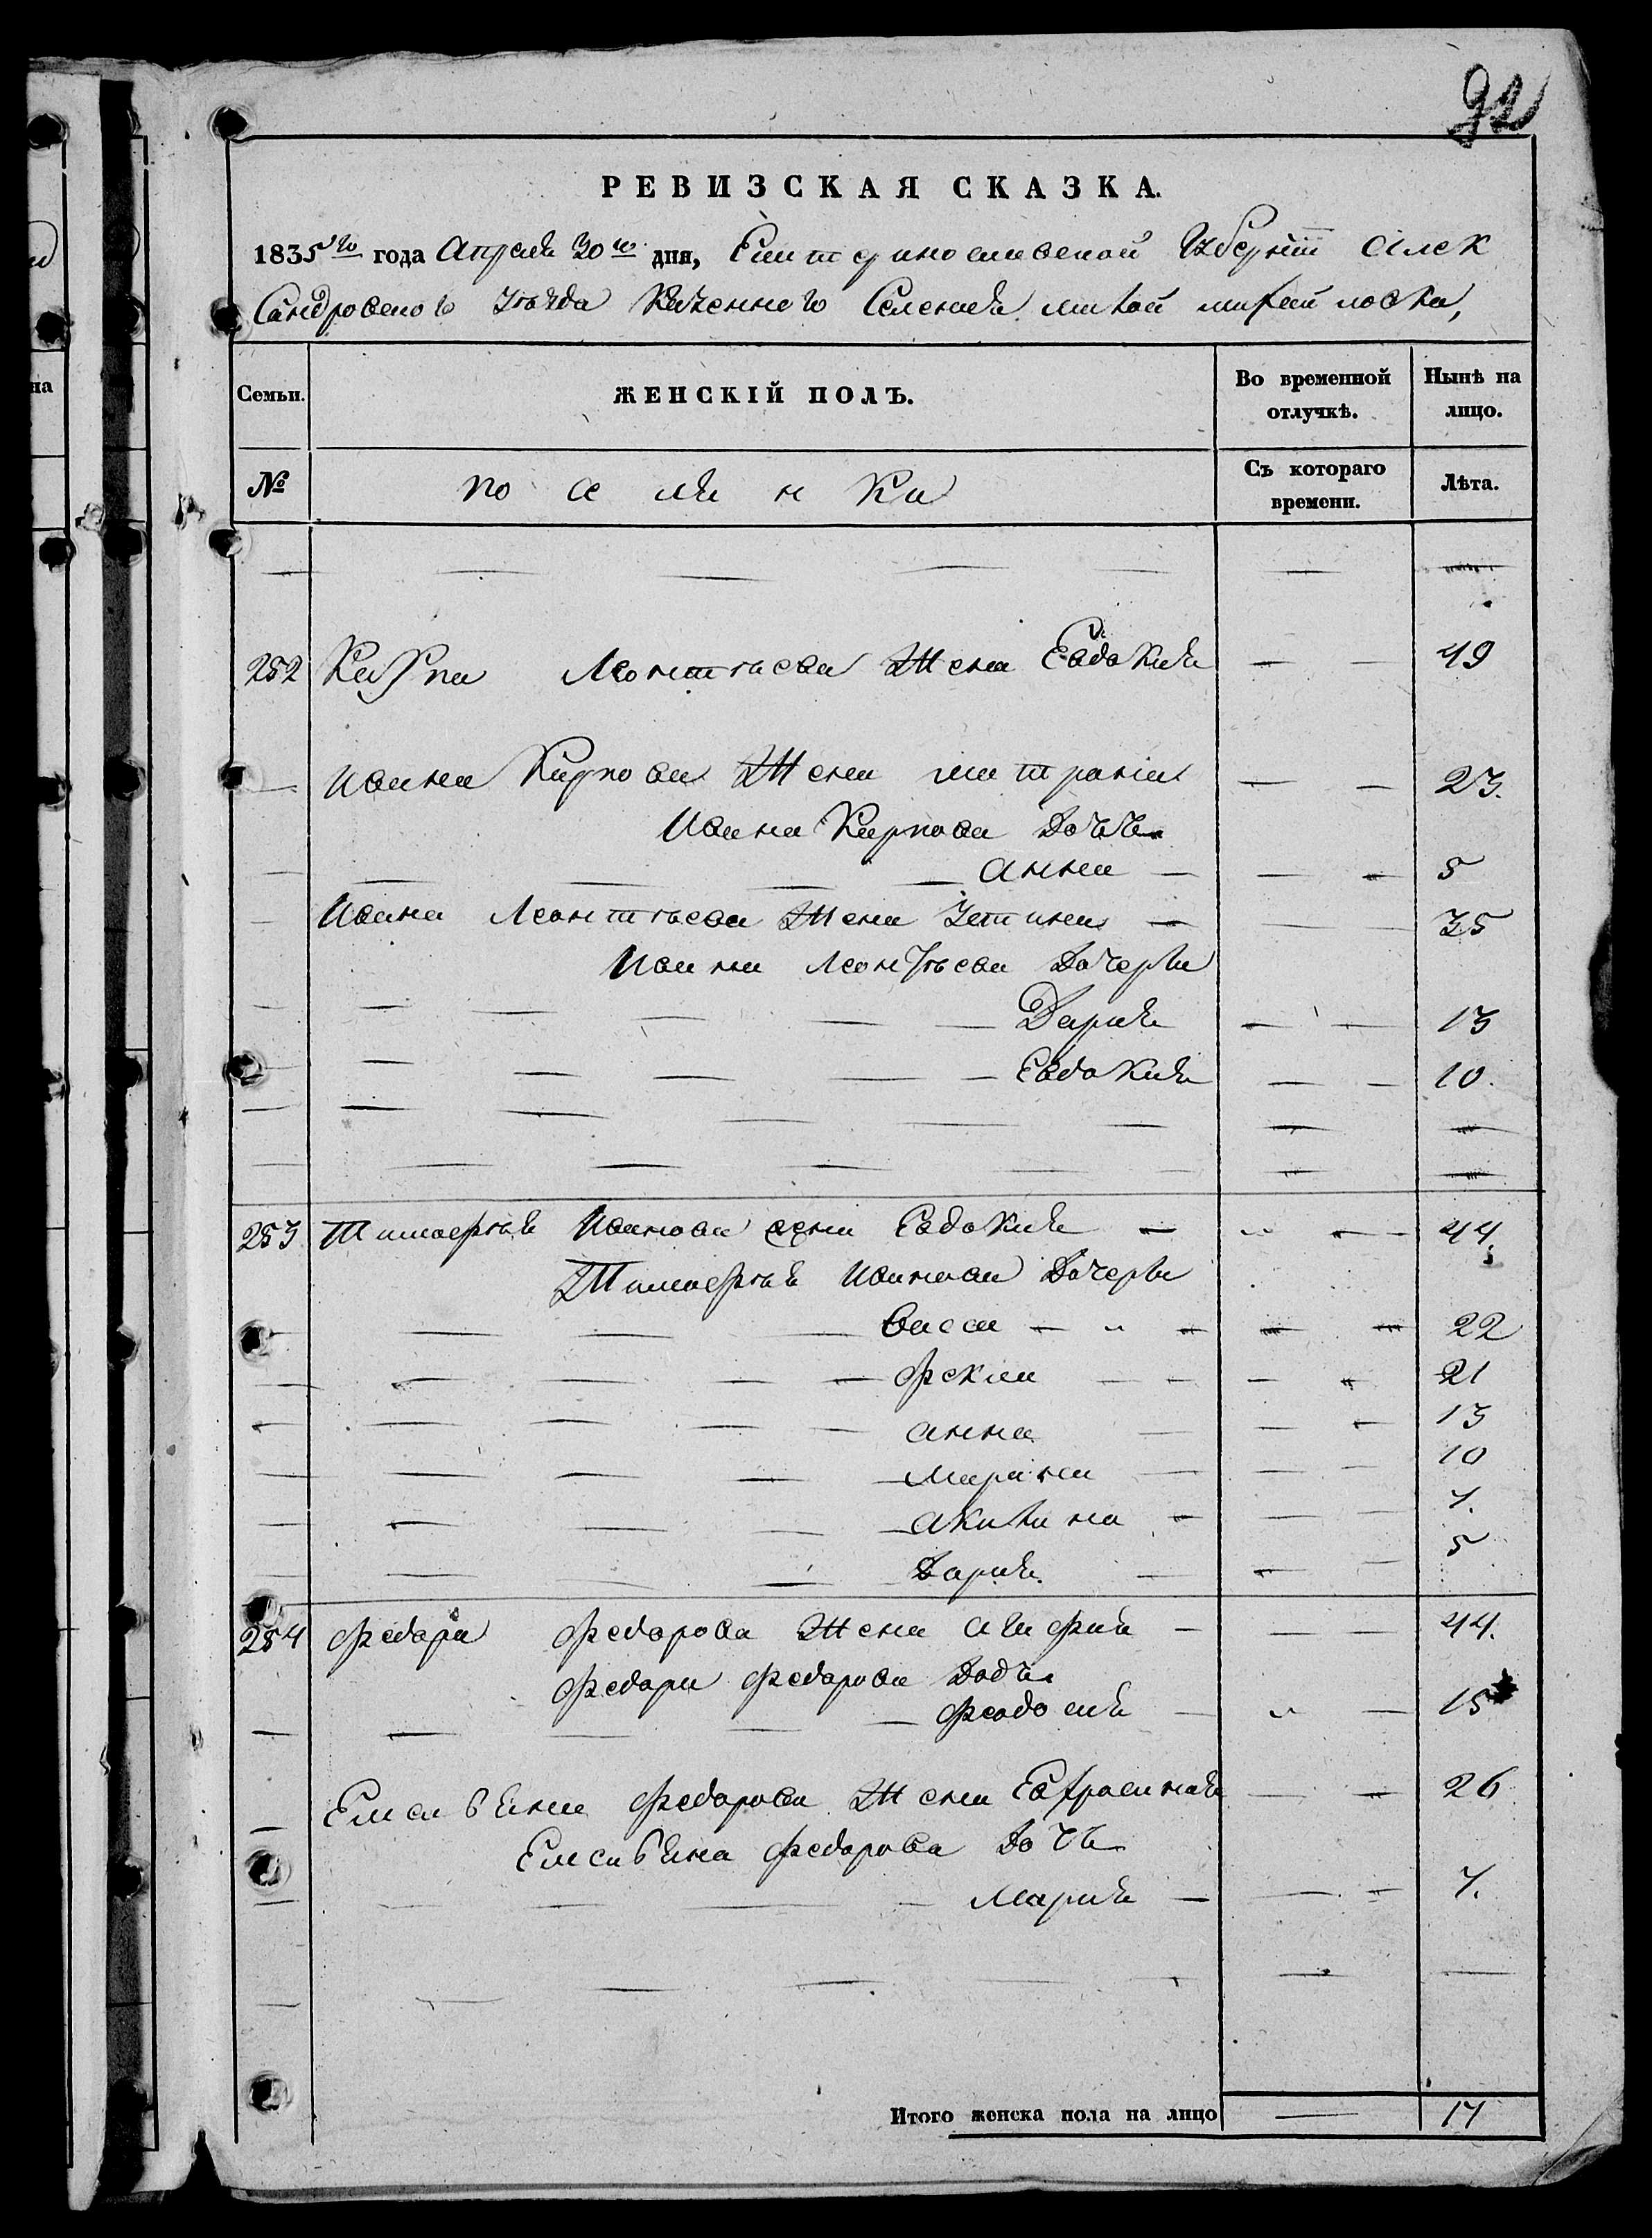 92
РЕВИЗСКАЯ СКАЗКА.
1835го года Апреля 30го дня, Екатеринославской Губернии Алек
Сандровского Уезда Казенного Селения малой михайловки,
на
Семьи.
ЖЕНСКІЙ ПОЛЪ.
Во временной отлучкѣ.
Нынѣ на лицо.
№
по с ля н ки
Съ котораго времени.
Лѣта.
252 Карпа Леонтьева Жена Евдокия 49
Ивана Карпова Жена матрона 23.
Ивана Карпова Дочь
анна 5
Ивана Леонтьева Жена Устина 35
Ивана Леонтьева Дочери
Дария 13
Евдокия 10.
253 Тимофея Иванова жена Евдокия 44.
Тимофея Иванова Дочери
Васса 22
Фекла 21
анна 13
Марина 10
акилина 7.
Дария 5
254 Федара Федорова Жена агафия 44.
Федара Федарова Дочь
Феодосия 15
Емельяна Федорова Жена Евфросиния 26
Емельяна Федарова Дочь
Мария 7.
Итого женска пола на лицо 17